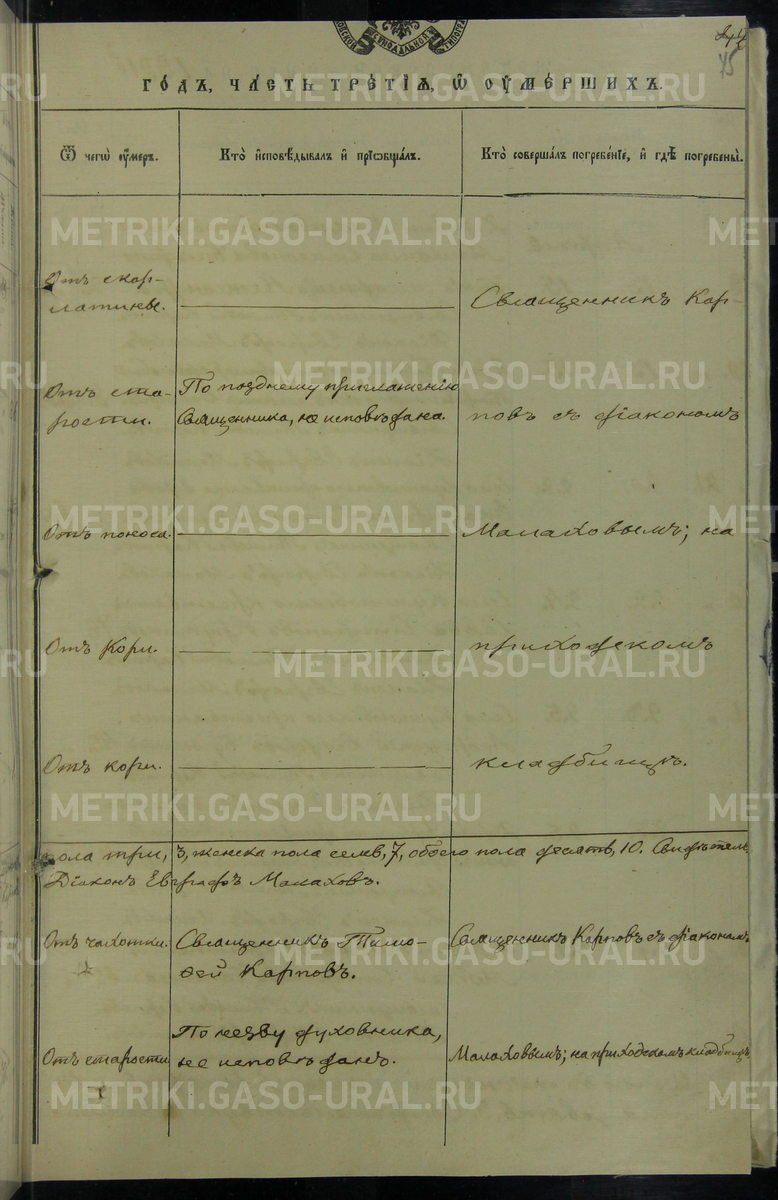 45
го́дъ, ча́сть тре́тїѧ, ѡ҆ ᲂу҆ме́ршихъ.
Ѿ чегѡ̀ ᲂу҆́меръ.
Кто̀ и҆сповѣ́дывалъ и҆ прїѡбща́лъ.
Кто̀ соверша́лъ погребе́нїе, и҆ гдѣ̀ погребены̀.
Отъ скар-
латины.
Священникъ Кар-
Отъ ста-
рости.
По позднему приглашенію
Священника, не исповѣдана.
повъ съ діакономъ
Отъ поноса.
Малаховымъ; на
Отъ Кори.
приходскомъ
Отъ кори.
кладбищѣ.
пола три, 3, женска пола семь, 7, обоего пола десять, 10. Свидѣтель
Діаконъ Евграфъ Малаховъ.
Отъ чахотки.
Священникъ Тимо-
ѳей Карповъ.
Священникъ Карповъ съ діакономъ
Отъ старости
По незву духовника,
не исповѣданъ.
Малаховымъ; на приходскомъ кладбищѣ
METRIKI.GASO-URAL.RU